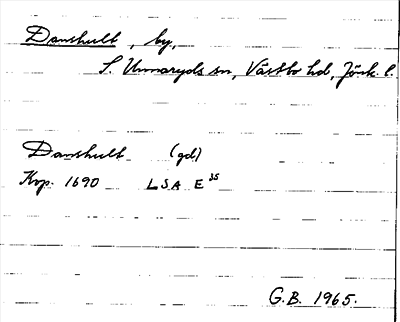 Damshult, by,
S. Unnaryds sn, Västbo hd, Jönk. l.
Damshult (gd)
Kvp. 1690 LSA E 35
G.B. 1965.